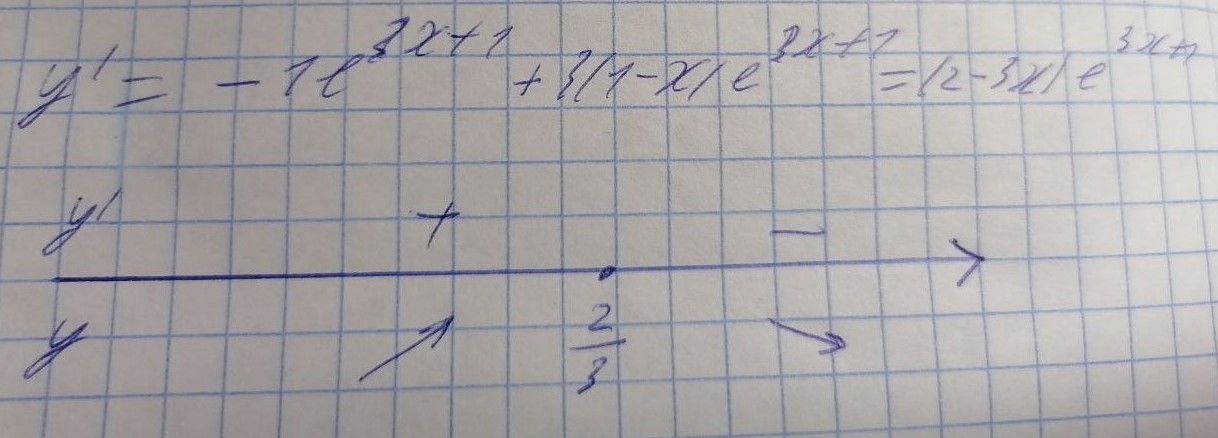 y' = -1e^{3x+1} + 3(1-x)e^{3x+1} = (2-3x)e^{3x+1}
y' + −
y ↗ 2/3 ↘